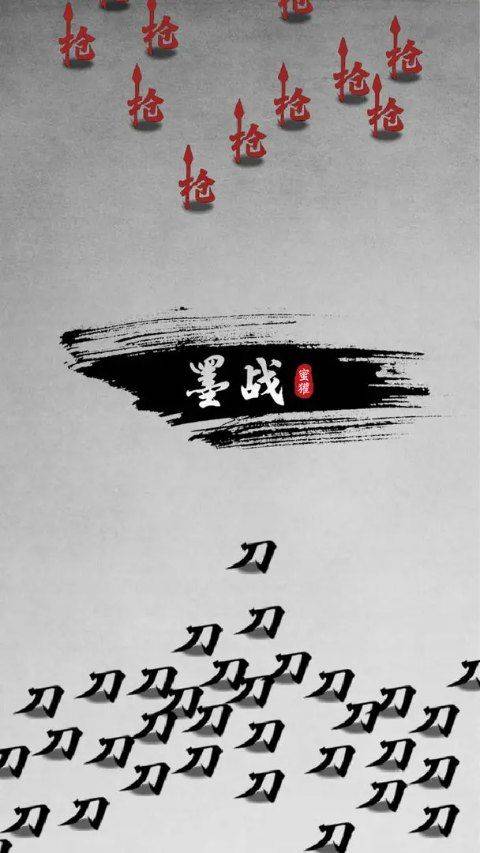 枪 枪 枪
枪 枪 枪 枪
枪
枪
墨战 蜜獾
刀
刀 刀
刀 刀 刀 刀 刀 刀
刀 刀 刀 刀
刀 刀 刀 刀 刀 刀
刀 刀 刀 刀 刀 刀
刀 刀 刀
刀 刀 刀 刀